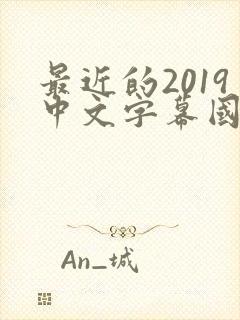 最近的2019
中文字幕國
An_城